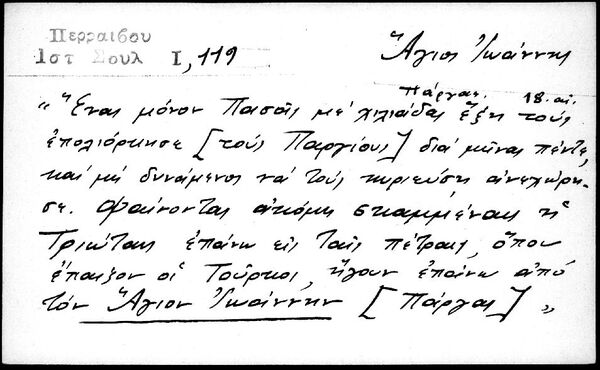 Περραιβου
Ιστ Σουλ Ι, 119
Ἅγιος Ἰωάννης
Πάργας. 18. αἰ.
"Ἕνας μόνον Πασᾶς μέ χιλιάδας ἕξη τούς
ἐπολιόρκησε [τούς Παργίους] διά μῆνας πέντε,
καί μή δυνάμενος νά τούς κυριεύσῃ ἀνεχώρη-
σε. Φαίνονται ἀκόμη σκαμμέναις ἡ
Τριώταις ἐπάνω εἰς ταῖς πέτραις, ὅπου
ἔπαιζον οἱ Τοῦρκοι, ἤγουν ἐπάνω ἀπό
τόν Ἅγιον Ἰωάννην [Πάργας]"